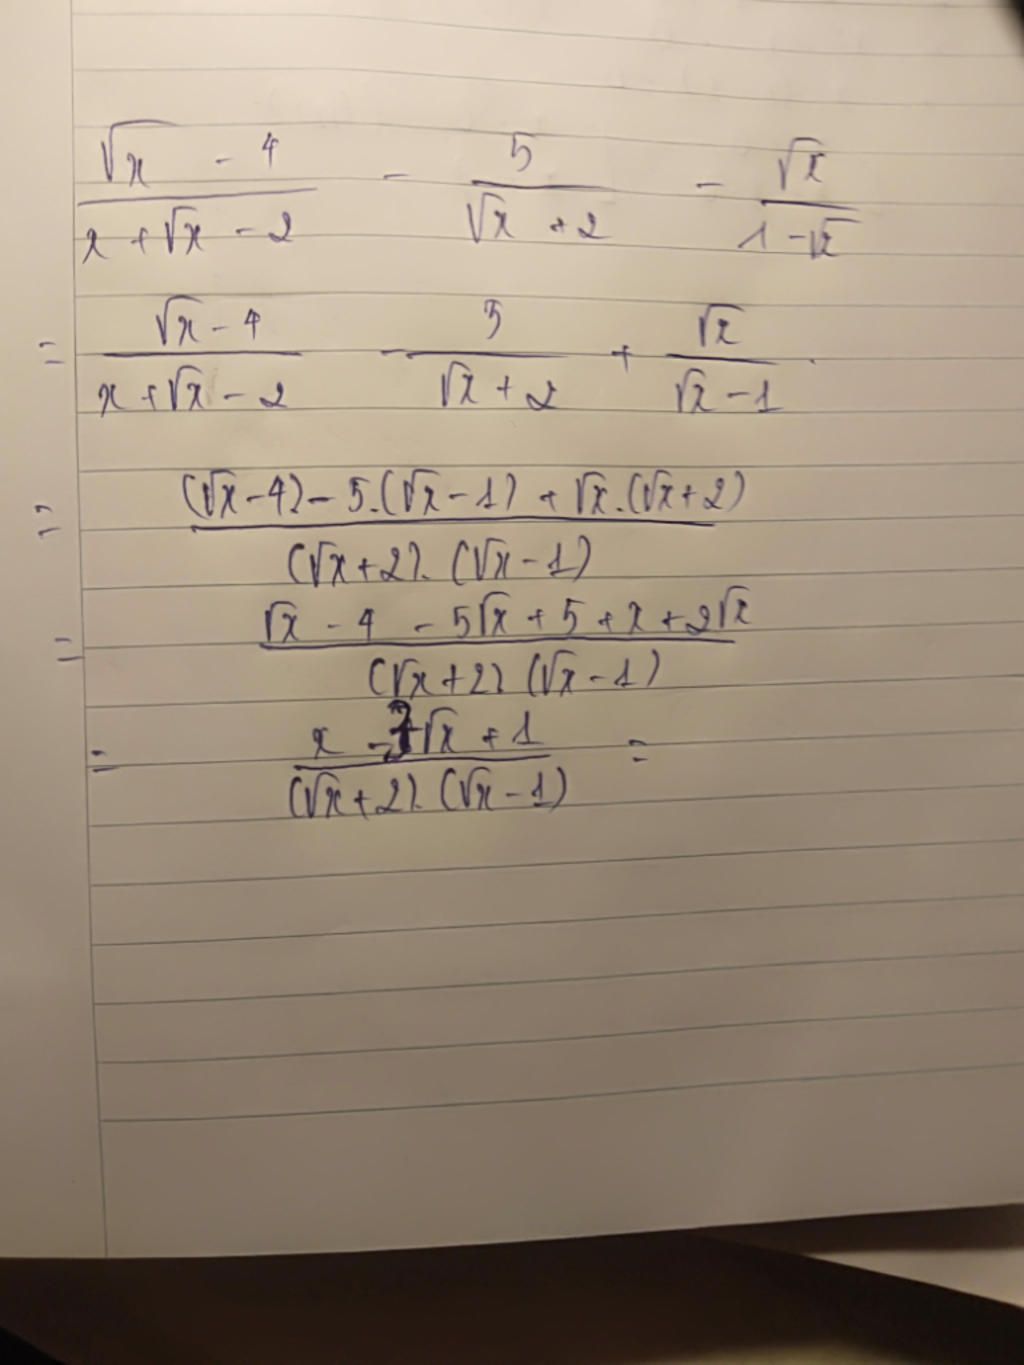 (√x - 4)/(x + √x - 2) - 5/(√x + 2) - √x/(1 - √x)
= (√x - 4)/(x + √x - 2) - 5/(√x + 2) + √x/(√x - 1).
= ((√x - 4) - 5.(√x - 1) + √x.(√x + 2))/((√x + 2).(√x - 1))
= (√x - 4 - 5√x + 5 + x + 2√x)/((√x + 2).(√x - 1))
= (x - √x + 1)/((√x + 2).(√x - 1)) =